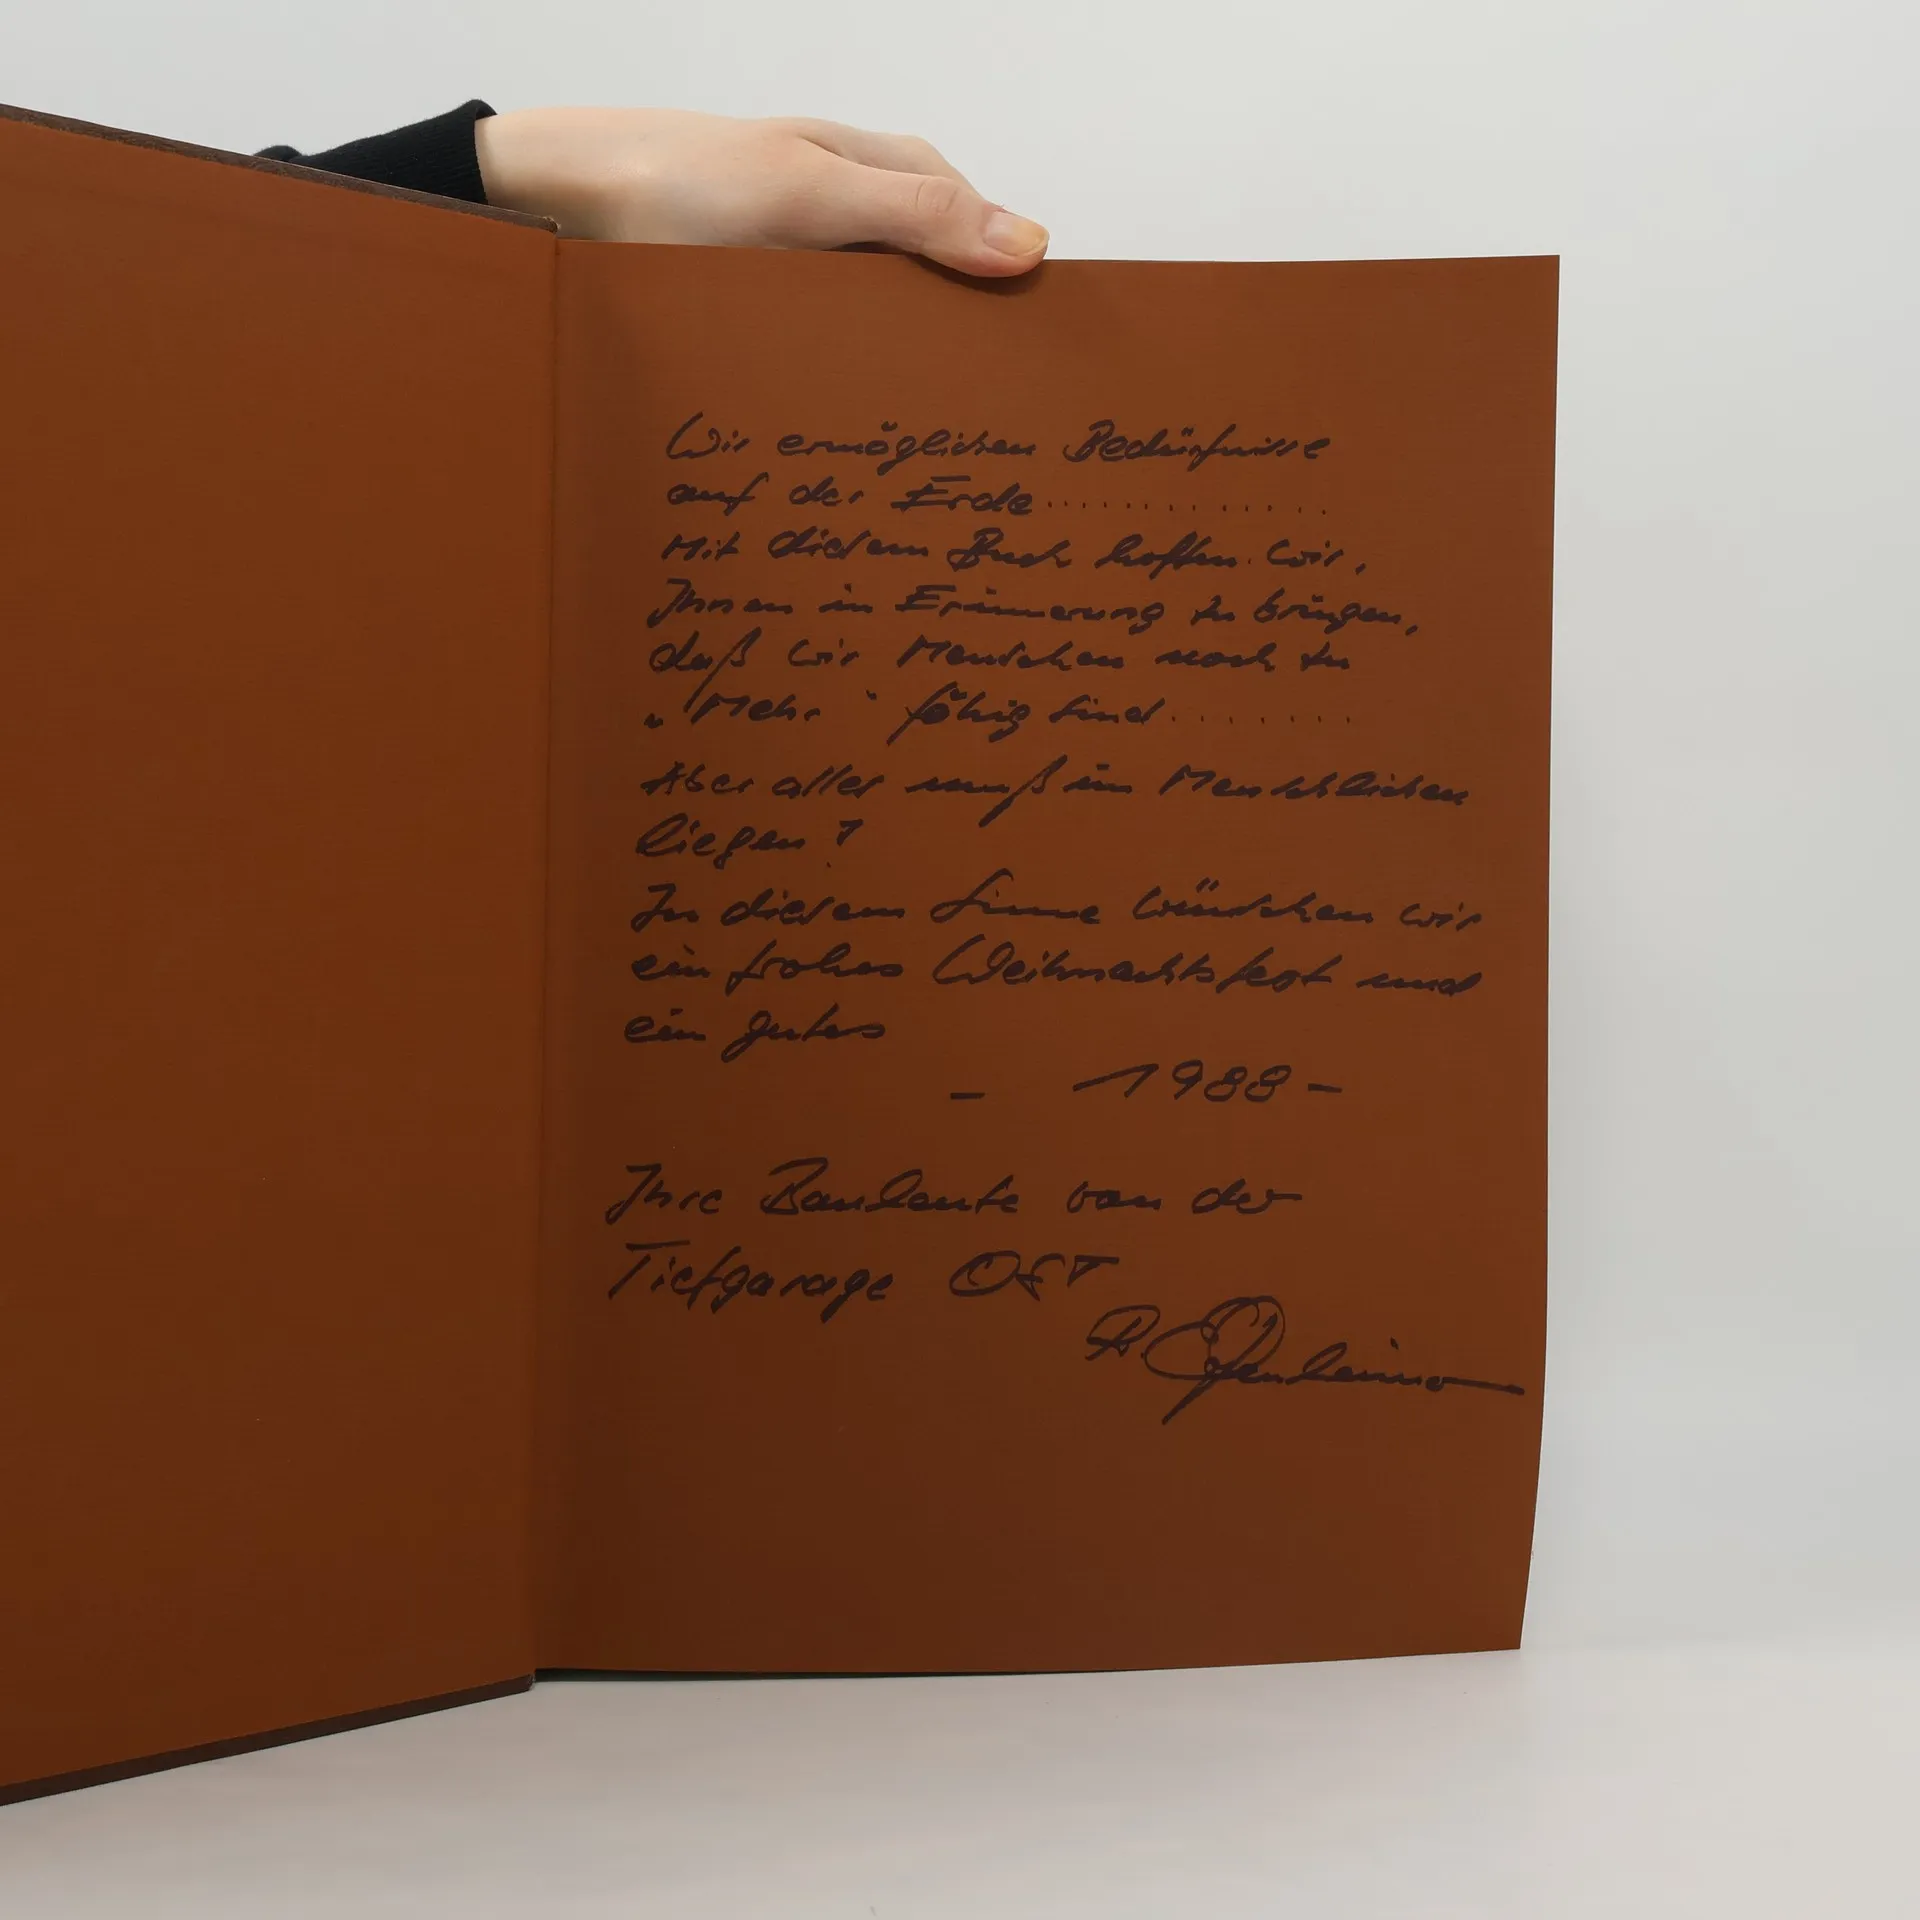 Wir ermöglichen Bedürfnisse
auf der Erde..............
Mit diesem Buch hoffen wir,
Ihnen in Erinnerung zu bringen,
daß wir Menschen noch zu
„Mehr" fähig sind........
Aber alles muß im Menschlichen
liegen?
In diesem Sinne wünschen wir
ein frohes Weihnachtsfest und
ein gutes
- 1988-
Ihre Bauleute von der
Tiefgarage OST